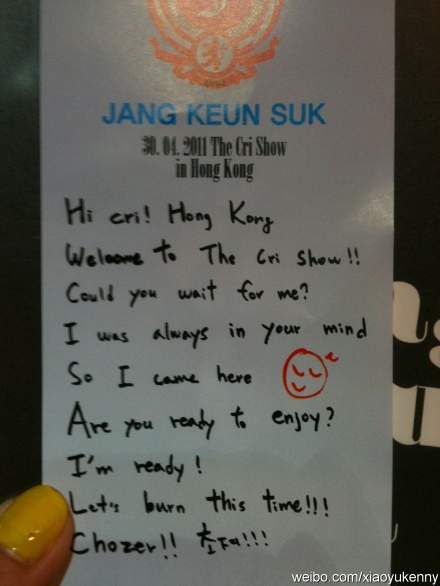 JANG KEUN SUK
30. 04. 2011 The Cri Show
in Hong Kong
Hi cri! Hong Kong
Welcome to The Cri show!!
Could you wait for me?
I was always in your mind
So I came here
Are you ready to enjoy?
I'm ready!
Let's burn this time!!!
Chozer!!
weibo.com/xiaoyukenny